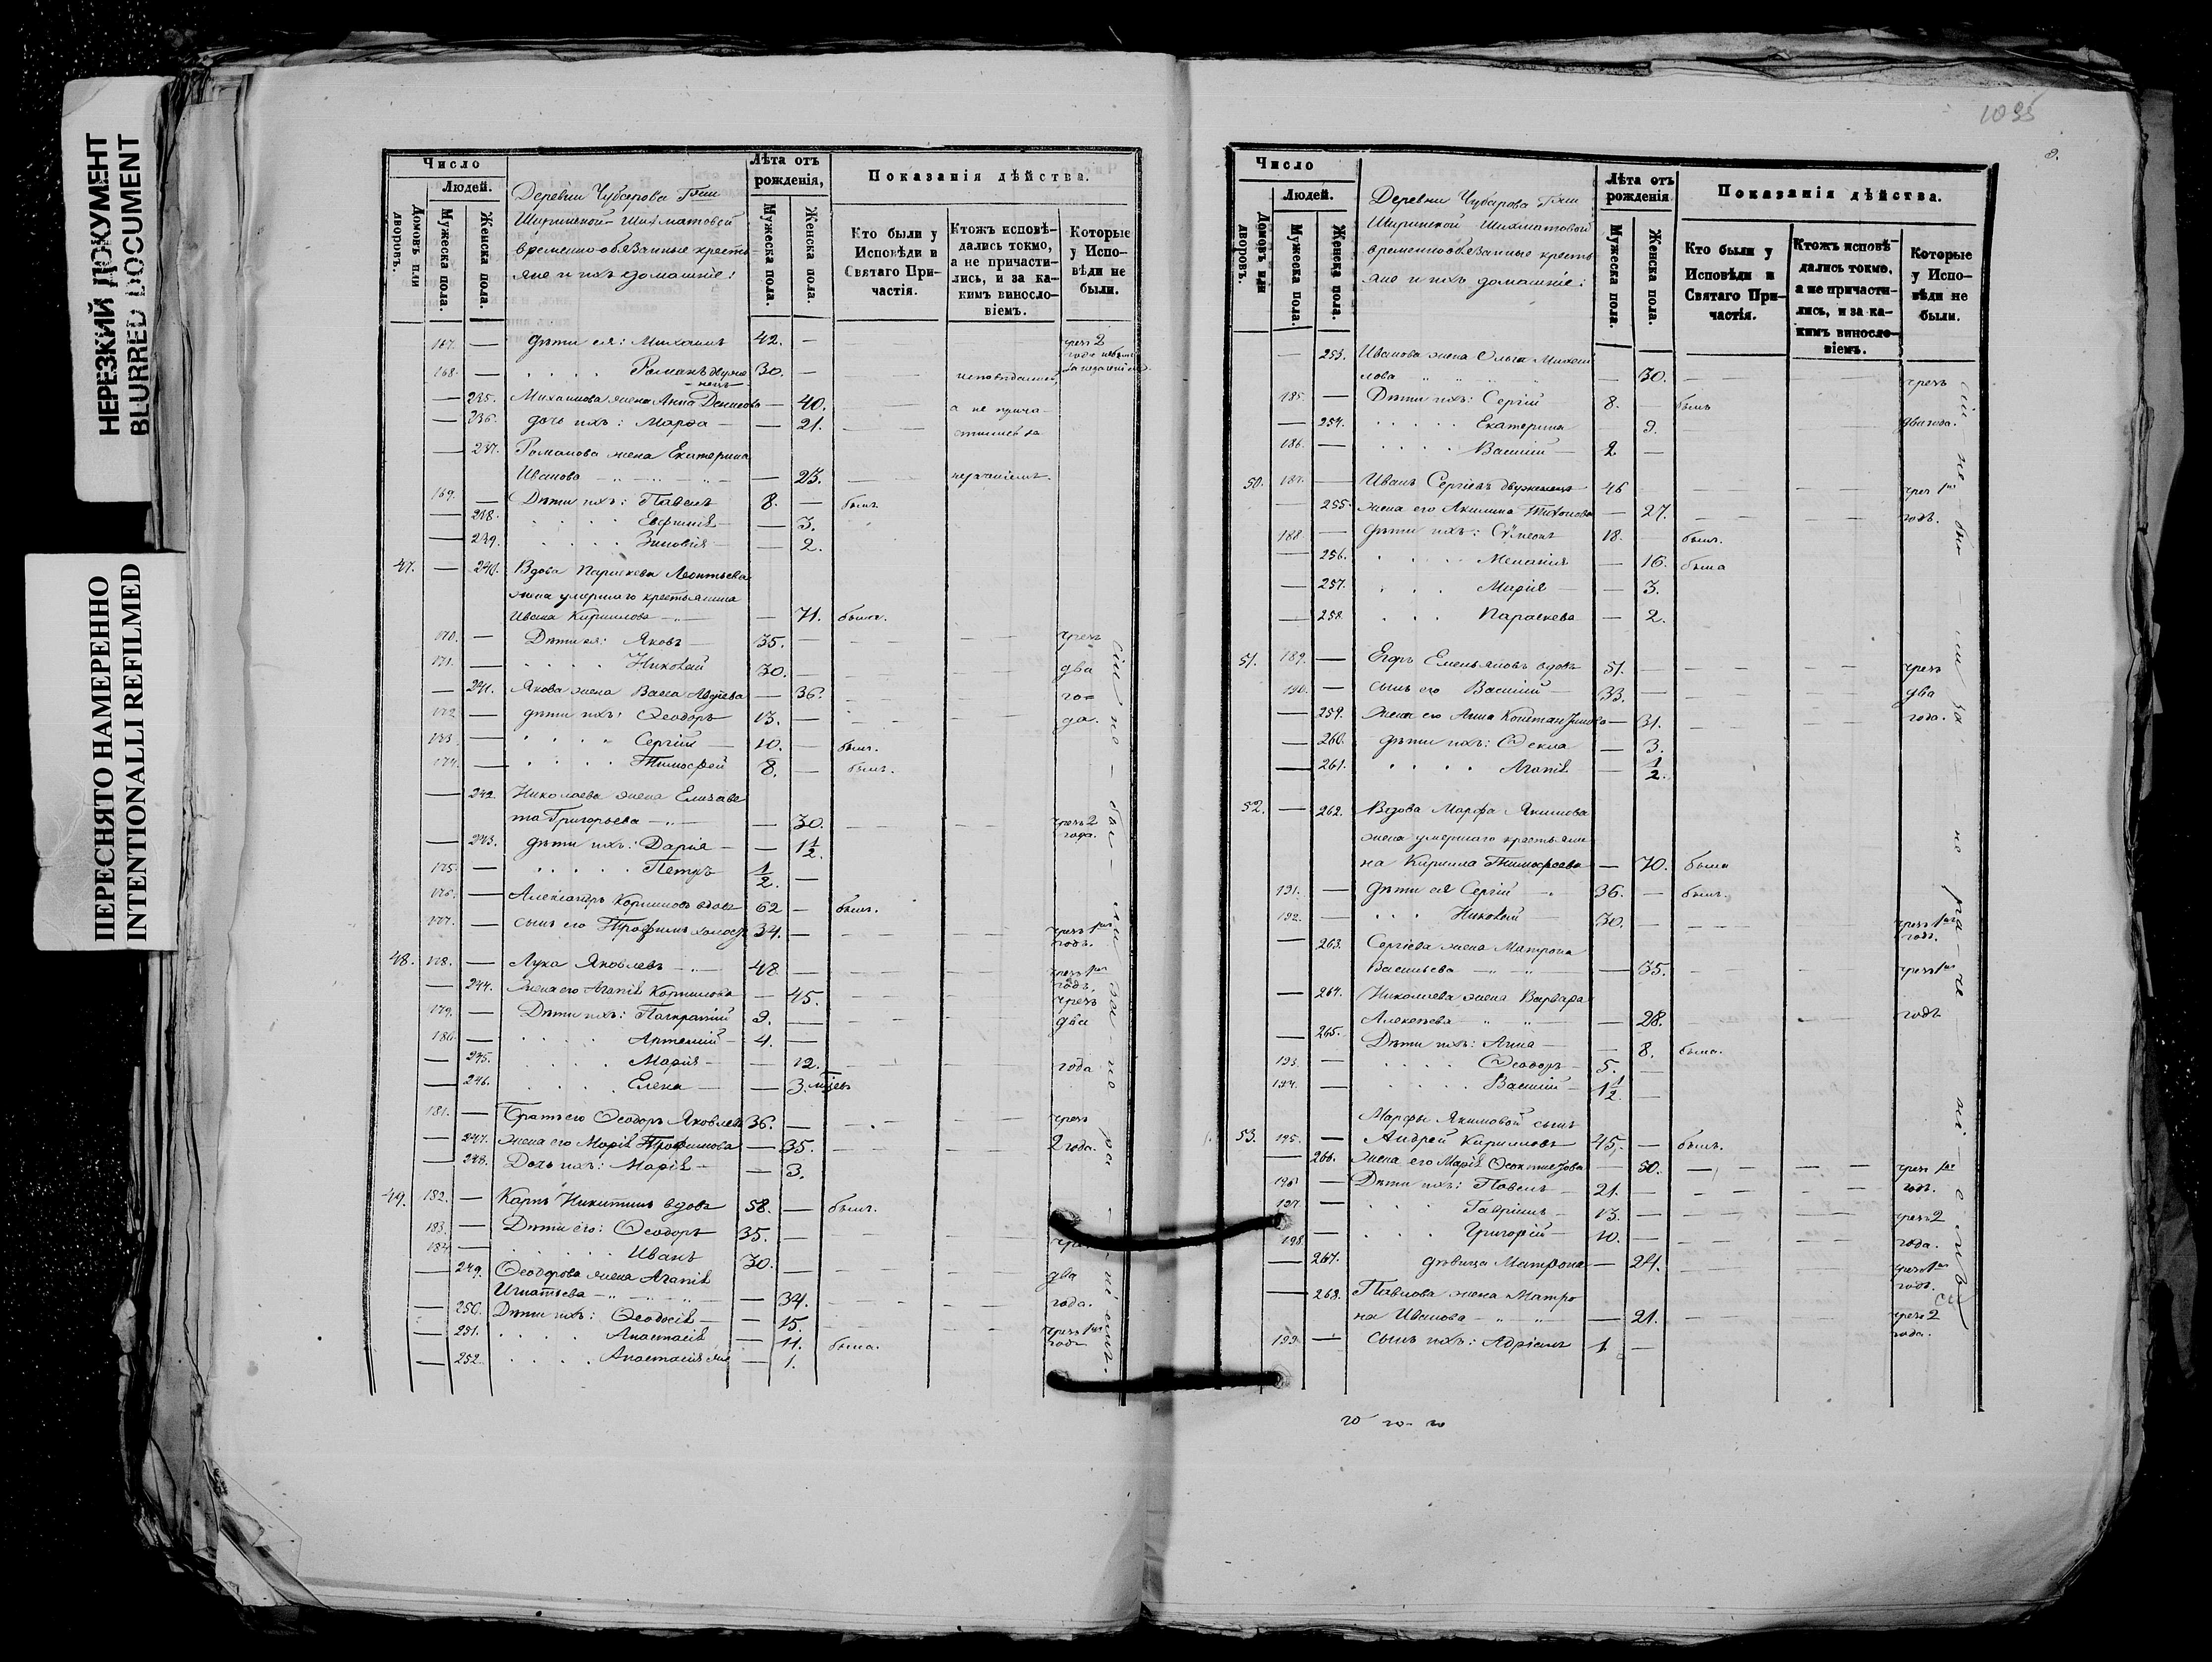 НЕРЕЗКИЙ ДОКУМЕНТ
BLURRED DOCUMENT
ПЕРЕСНЯТО НАМЕРЕННО
INTENTIONALLI REFILMED
Число
Людей.
Домовъ или дворовъ.
Мужеска пола.
Женска пола.
Деревни Чубарова Гжи
Ширинской-Шихматовой
временно-обязанные кресть
яне и ихъ домашніе:
Лѣта отъ рожденія,
Мужеска пола.
Женска пола.
Показанія дѣйства.
Кто были у Исповѣди и Святаго Причастія.
Ктожъ исповѣдались токмо, а не причастились, и за какимъ винословіемъ.
Которые у Исповѣди не были.
167. — дѣти ея: Михаилъ 42. — чрез 2 года
168. — Романъ двуже-нецъ 30. — исповѣдались,
— 235. Михаилова жена Анна Денисова — 40. а не прича-
— 236. дочь ихъ: Марѳа — 21. стились за
— 237. Романова жена Екатерина
Иванова — 23. нераченіемъ.
169. — Дѣти ихъ: Павелъ 8. — былъ.
— 238. Евфимія — 3.
— 239. Зиновія — 2.
47. — 240. Вдова Параскева Леонтьева
жена умершаго крестьянина
Ивана Кириллова — 71. была.
170. — Дѣти ея: Яковъ 35. — чрезъ
171. — Николай 30. два
— 241. Якова жена Васса Авдіева — 36. го=
172. — дѣти ихъ: Ѳеодоръ 13. — да.
173. — Сергій 10. — былъ.
174. — Тимоѳей 8. — былъ.
— 242. Николаева жена Елизаве
та Григорьева — 30. чрезъ 2 года.
— 243. дѣти ихъ: Дарія — 1 1/2.
175. — Петръ 1/2. —
176. — Александръ Корниловъ вдовъ 62 — былъ.
177. — сынъ его Трофимъ холост 34. — чрезъ 1нъ годъ.
48. 178. — Лука Яковлевъ 48 — чрезъ 1нъ годъ.
— 244. Жена его Агапія Корнилова — 45. чрезъ
179. — Дѣти ихъ: Панкратій 9. — два
180. — Артемій 4. —
— 245. Марія — 12. года
— 246. Елена — 3. мѣсяц
181. — Братъ его Ѳеодоръ Яковлевъ 36. — чрезъ
— 247. Жена его Марія Трофимова — 35. 2 года.
— 248. Дочь ихъ: Марія — 3.
49. 182. — Карпъ Никитинъ вдовъ 58. — былъ.
183. — Дѣти его: Ѳеодоръ 35. —
184. — Иванъ 30. — чрезъ
— 249. Ѳеодорова жена Агапія два
Игнатьева — 34. года.
— 250. Дѣти ихъ: Ѳеодосія — 15. чрезъ 1нъ
— 251. Анастасія — 11. была. годъ
— 252. Анастасія — 1.
1035
9.
Число
Людей.
Домовъ или дворовъ.
Мужеска пола.
Женска пола.
Деревни Чубарова Гжи
Ширинской Шихматовой
временнообязанные кресть
яне и ихъ домашніе:
Лѣта отъ рожденія
Мужеска пола.
Женска пола.
Показанія дѣйства.
Кто были у Исповѣди и Святаго Причастія.
Ктожъ исповѣдались токмо, а не причастились, и за какимъ винословіемъ.
Которые у Исповѣди не были.
— 253. Иванова жена Ольга Михаи
лова — 30. чрезъ
185. — Дѣти ихъ: Сергій 8. — былъ
— 254. Екатерина — 9. два года.
186. — Василій 2 —
50. 187. — Иванъ Сергіевъ двуженецъ 46 чрез 1нъ
— 255. жена его Акилина Тихонова — 27. годъ.
188. — дѣти ихъ: Сѵмеонъ 18. былъ.
— 256. Меланія — 16. была
— 257. Марія — 3.
— 258. Параскева — 2.
51. 189. — Егоръ Емельяновъ вдовъ 51. — чрезъ
190. — сынъ его Василій 33. — два
— 259. Жена его Анна Константинова — 31. года.
— 260. дѣти ихъ: Ѳекла — 3.
— 261. Агапія — 1/2.
52. — 262. Вдова Марѳа Якимова
жена умершаго крестьяни
на Кирилла Тимоѳеева — 70. была
191. — дѣти ея Сергій 36. — былъ.
192. — Николай 30. — чрезъ 1нъ годъ.
— 263. Сергіева жена Матрона
Васильева — 35. чрезъ 1нъ
— 264. Николаева жена Варвара
Алексѣева — 28. годъ
— 265. Дѣти ихъ: Анна — 8. была.
193. — Ѳеодоръ 5. —
194. — Василій 1 1/2. —
Марѳы Якимовой сынъ
53. 195. — Андрей Кирилловъ 45. — былъ.
— 266. Жена его Марія Ѳеоктистова — 50. чрезъ 1нъ
196. — Дѣти ихъ: Павелъ 21. — годъ.
197. — Гавріилъ 13. — чрезъ 2
198 — Григорій 10. — года.
— 267. дѣвица Матрона — 24. чрезъ 1нъ годъ.
— 268. Павлова жена Матро
на Иванова — 21. чрезъ 2 года.
199. — сынъ ихъ: Адріанъ 1 —